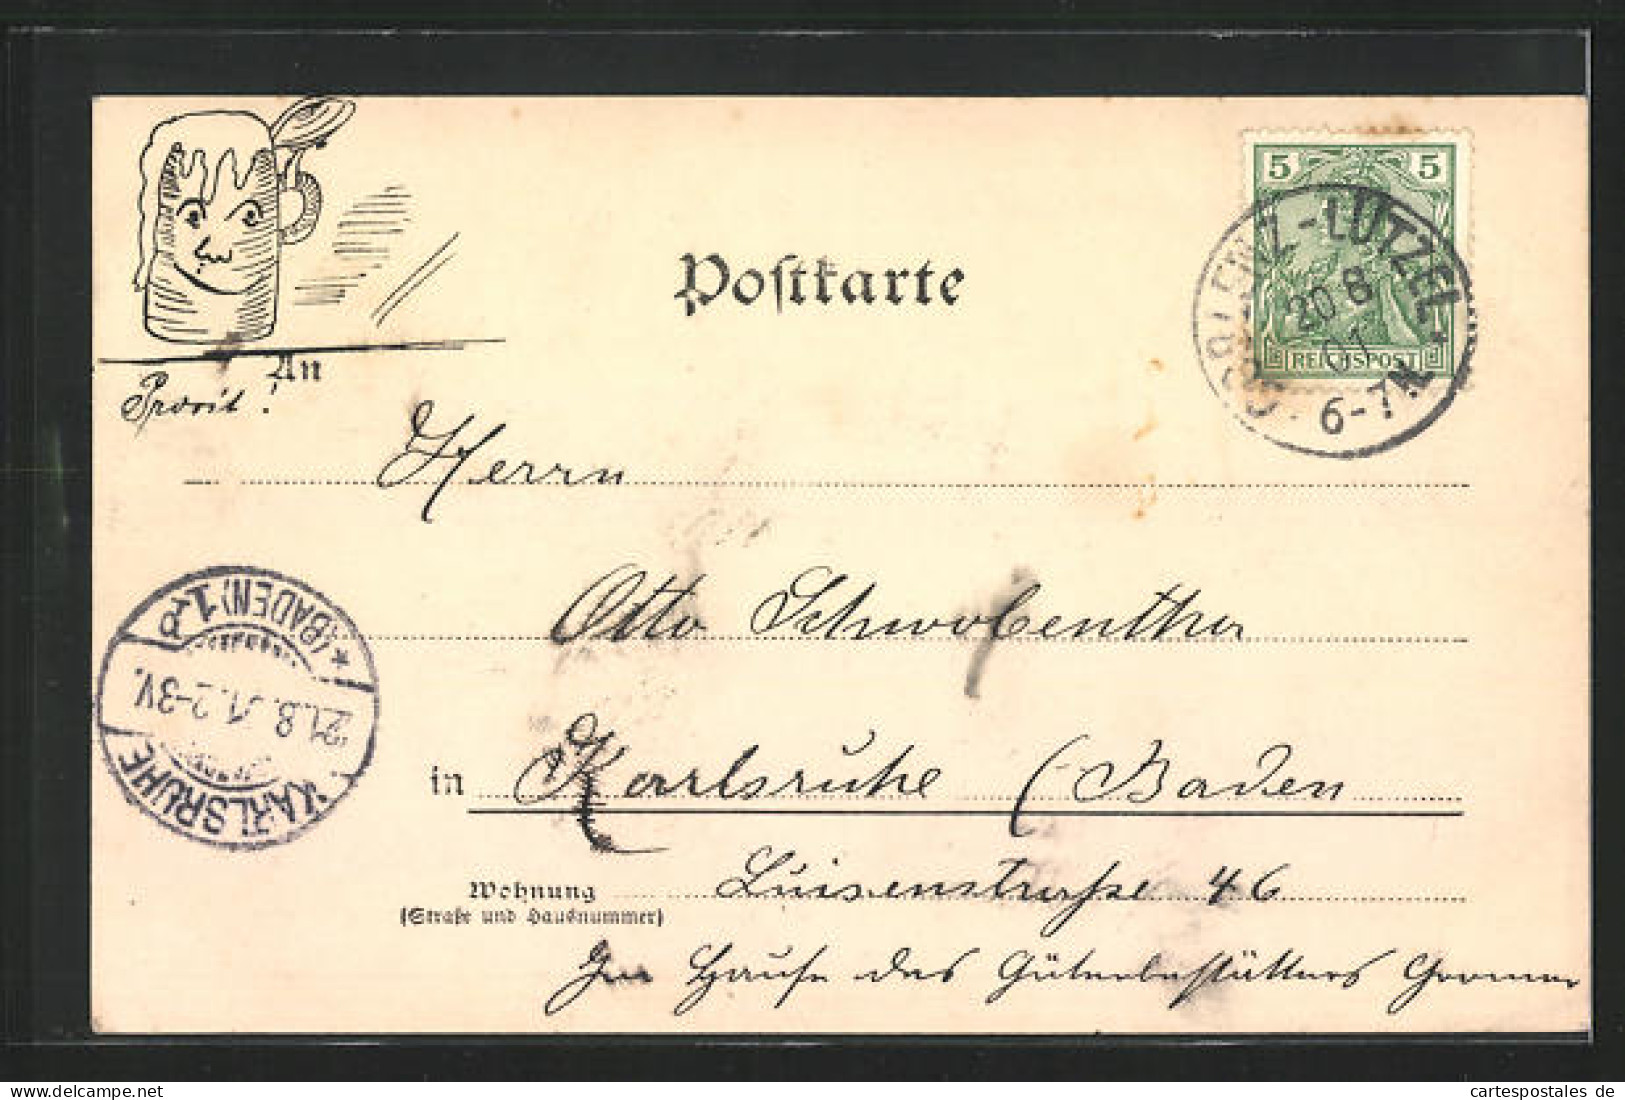 5 5
REICHSPOST
COBLENZ-LÜTZEL *
20 8
01
6-7N.
Postkarte
Prosit!
An
Herrn
Otto Schwabenthan
in Karlsruhe (Baden
Wohnung Luisenstraße 46
(Straße und Hausnummer)
Im Hause des Güterbestätters
KARLSRUHE
21.8. 01. 2-3V.
* (BADEN) 1.P
cartespostales de